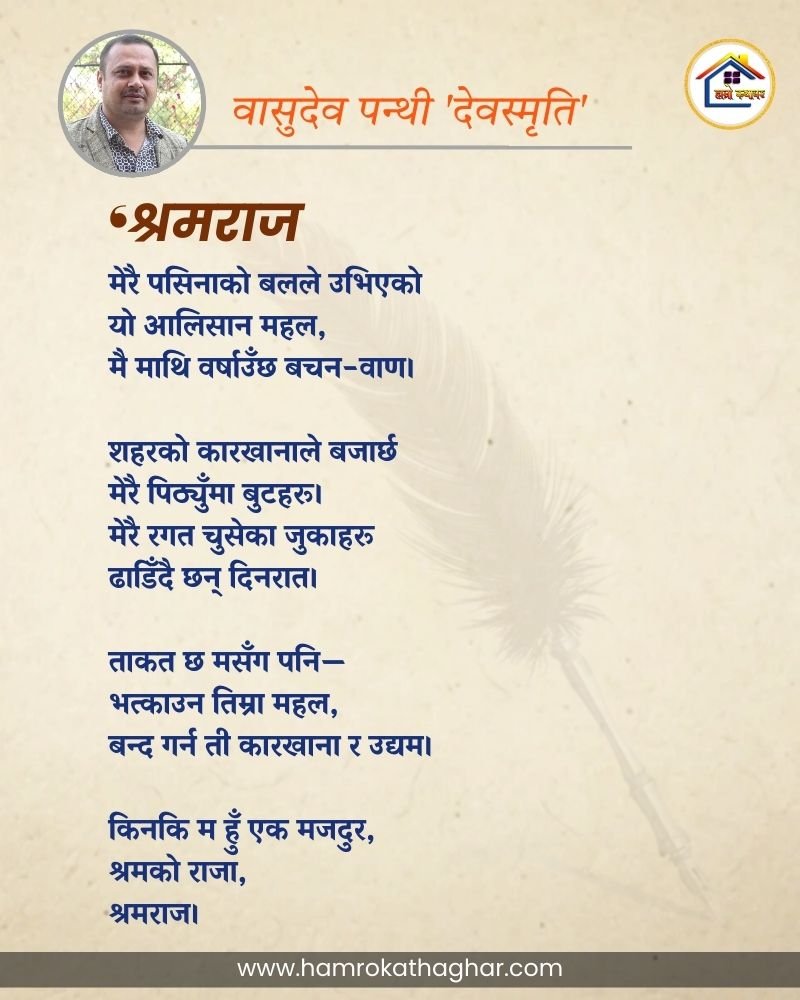 वासुदेव पन्थी 'देवस्मृति'
हाम्रो कथाघर
‘श्रमराज
मेरै पसिनाको बलले उभिएको
यो आलिसान महल,
मै माथि वर्षाउँछ बचन-वाण।
शहरको कारखानाले बजार्छ
मेरै पिठ्युँमा बुटहरू।
मेरै रगत चुसेका जुकाहरू
ढाडिँदै छन् दिनरात।
ताकत छ मसँग पनि—
भत्काउन तिम्रा महल,
बन्द गर्न ती कारखाना र उद्यम।
किनकि म हुँ एक मजदुर,
श्रमको राजा,
श्रमराज।
www.hamrokathaghar.com